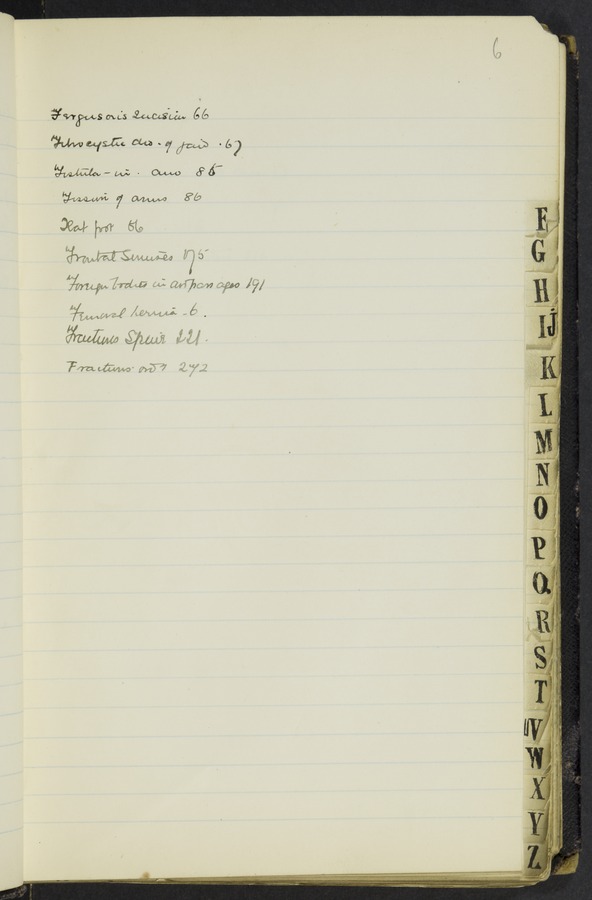 6
Ferguson's Incision 66
Fibrocystic dis. of jaw . 67
Fistula - in . ano 85
Fissure of anus 86
Flat foot 56
Frontal Sinuses 175
Foreign bodies in air passages 191
Femoral hernia - 6 .
Fractures Spine 221 .
Fractures 272
F
G
H
IJ
K
L
M
N
O
P
Q
R
S
T
UV
W
X
Y
Z